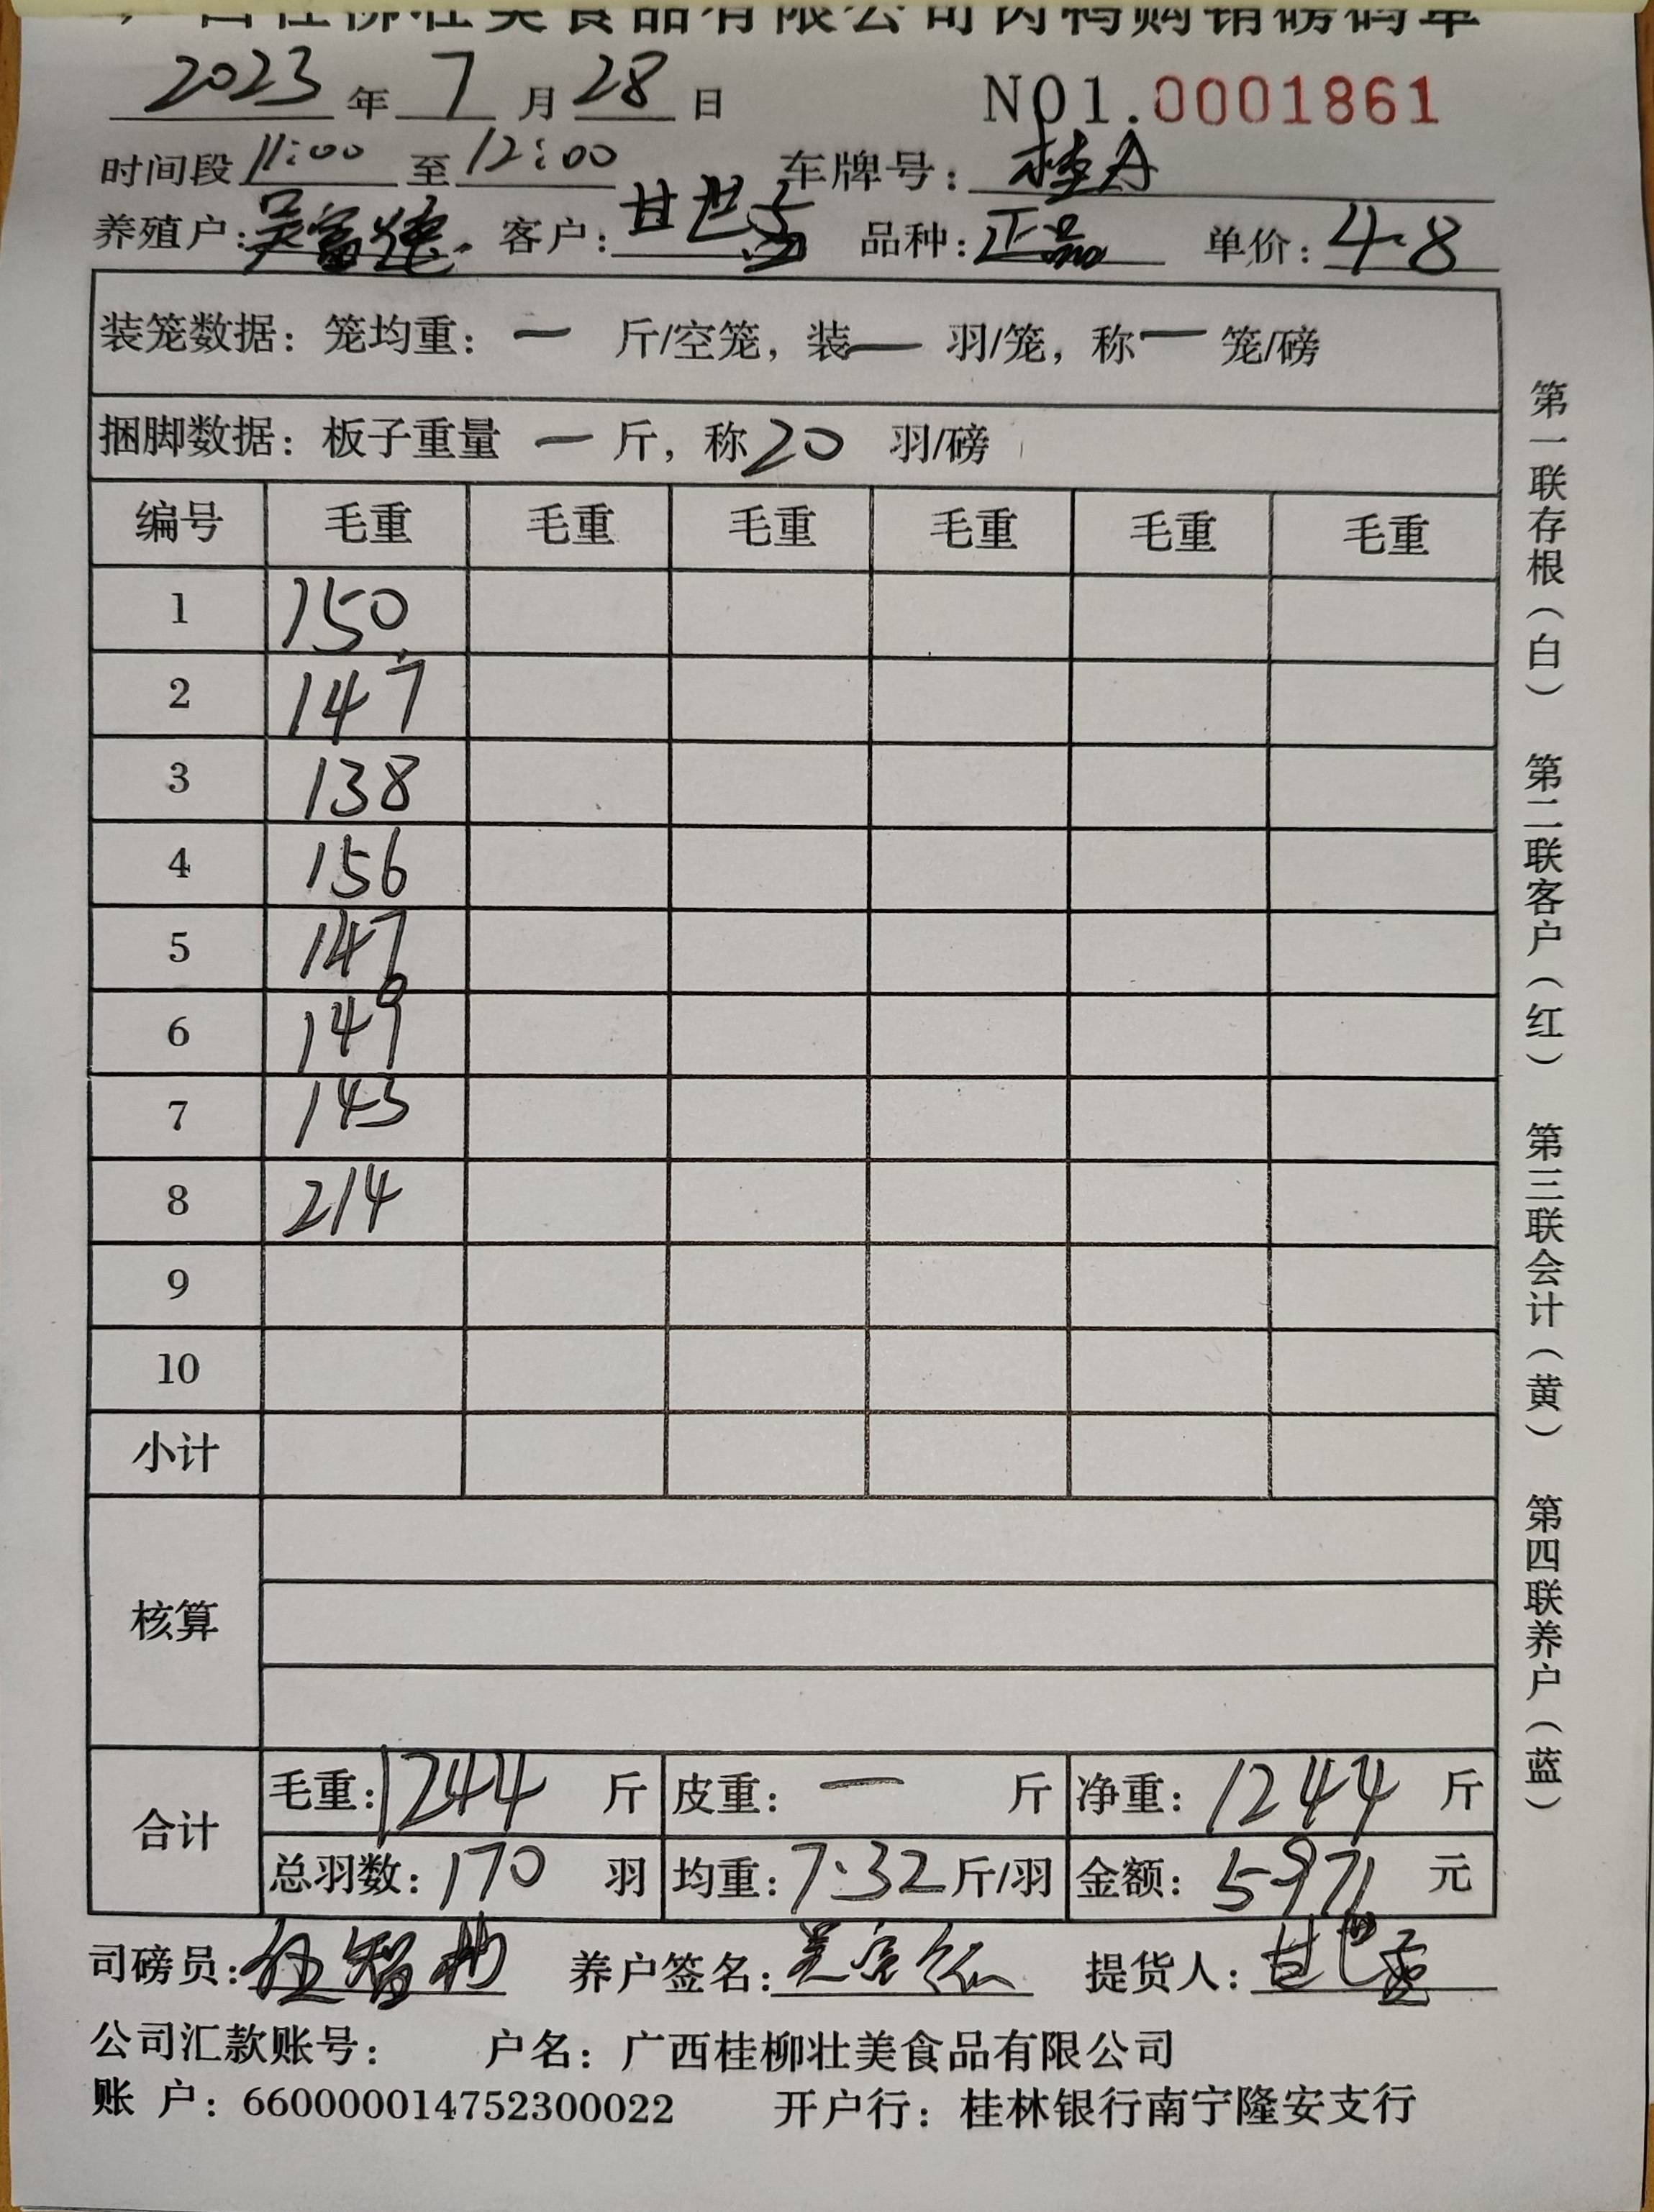 广西桂柳壮美食品有限公司肉鸭购销磅码单
2023年7月28日 NO1.0001861
时间段11:00至12:00 车牌号:桂A
养殖户:吴富 客户:甘世 品种:正品 单价:4.8
装笼数据:笼均重:一斤/空笼,装一羽/笼,称一笼/磅
捆脚数据:板子重量一斤,称20羽/磅
编号 毛重 毛重 毛重 毛重 毛重 毛重
1 150
2 147
3 138
4 156
5 147
6 149
7 143
8 214
9
10
小计
核算
合计 毛重:1244斤 皮重:一斤 净重:1244斤
总羽数:170羽 均重:7.32斤/羽 金额:5971元
司磅员: 智 养户签名:吴富 提货人:甘世
公司汇款账号: 户名:广西桂柳壮美食品有限公司
账 户:660000014752300022 开户行:桂林银行南宁隆安支行
第一联存根(白) 第二联客户(红) 第三联会计(黄) 第四联养户(蓝)